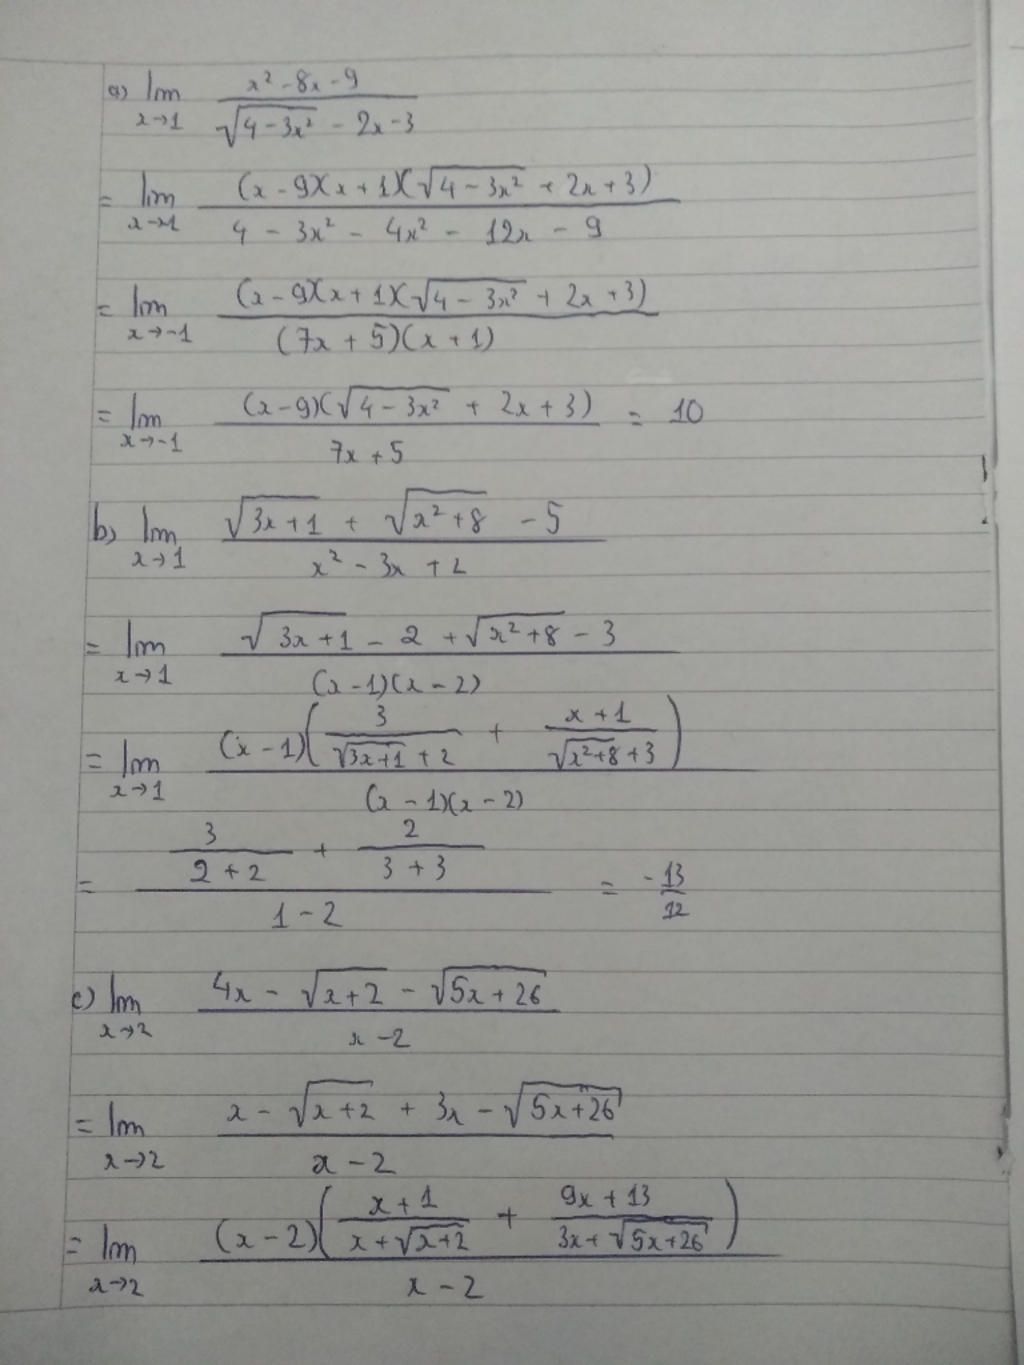 a) lim x→1 (x² - 8x - 9)/(√(4 - 3x²) - 2x - 3)
= lim x→-1 ((x - 9)(x + 1)(√(4 - 3x²) + 2x + 3))/(4 - 3x² - 4x² - 12x - 9)
= lim x→-1 ((x - 9)(x + 1)(√(4 - 3x²) + 2x + 3))/((7x + 5)(x + 1))
= lim x→-1 ((x - 9)(√(4 - 3x²) + 2x + 3))/(7x + 5) = 10
b) lim x→1 (√(3x + 1) + √(x² + 8) - 5)/(x² - 3x + 2)
= lim x→1 (√(3x + 1) - 2 + √(x² + 8) - 3)/((x - 1)(x - 2))
= lim x→1 ((x - 1)(3/(√(3x + 1) + 2) + (x + 1)/(√(x² + 8) + 3)))/((x - 1)(x - 2))
= (3/(2 + 2) + 2/(3 + 3))/(1 - 2) = -13/12
c) lim x→2 (4x - √(x + 2) - √(5x + 26))/(x - 2)
= lim x→2 (x - √(x + 2) + 3x - √(5x + 26))/(x - 2)
= lim x→2 ((x - 2)((x + 1)/(x + √(x + 2)) + (9x + 13)/(3x + √(5x + 26))))/(x - 2)